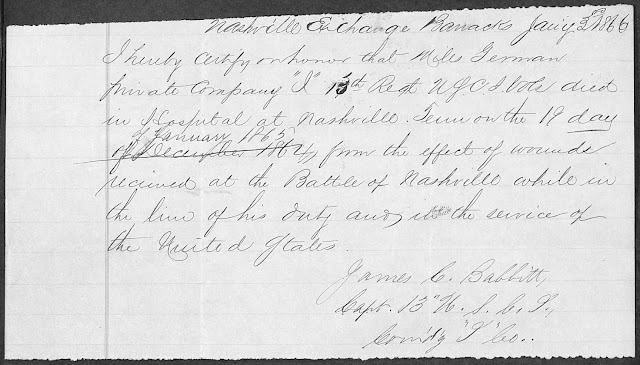 Nashville Exchange Barracks Jany 3d 1866
I hereby certify on honor that Miles German
Private Company "I" 13th Regt U.S.C.I. Vols died
in Hospital at Nashville. Tenn on the 19 day
of January 1865
of December 1864, from the effect of wounds
received at the Battle of Nashville while in
the line of his duty and in the service of
the United States.
James C. Babbitt,
Capt. 13" U.S.C.I.,
Com'd'g "I" Co..